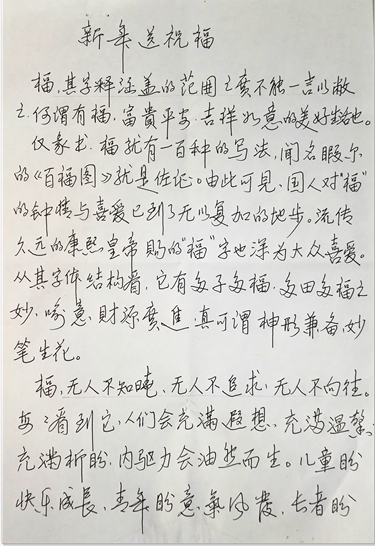 新年送祝福
福,其字释涵盖的范围之广不能一言以敝
之.何谓有福,富貴平安.吉祥如意的美好生活也。
仅篆书.福就有一百种的写法,闻名暇尔
的《百福图》就是佐证。由此可見,国人对"福"
的钟情与喜爱已到了无以复加的地步。流传
久远的康熙皇帝賜的"福"字也深为大众喜爱。
从其字体结构看,它有多子多福.多田多福之
妙.喻意,財源廣進.真可谓神形兼备,妙
笔生花。
福,无人不知曉、无人不追求、无人不向往。
每每看到它,人们会充满遐想、充满温馨、
充满祈盼,内驱力会油然而生。儿童盼
快乐成長、青年盼意氣风發、長者盼